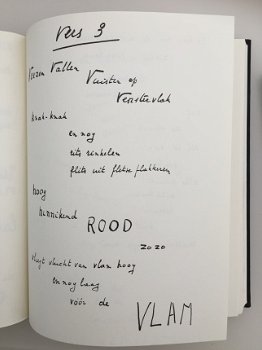 vers 3
Vuisten op
Venstervlak
knak-knak
en nog
uits rinkelen
flits uit fletse flakkeren
hoog
hinnikend ROOD
zozo
vliegt vlucht van vlam hoog
en nog laag
vóór de
VLAM